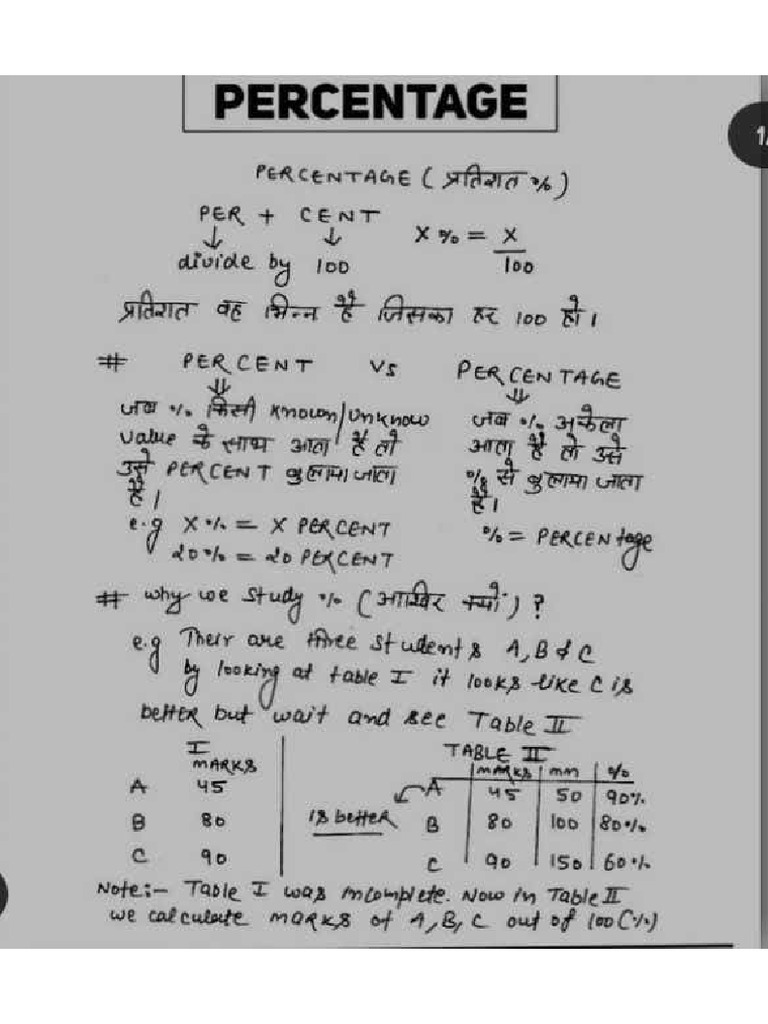 PERCENTAGE
1/
PERCENTAGE (प्रतिशत %)
PER + CENT
X % = X
divide by 100
100
प्रतिशत वह भिन्न है जिसका हर 100 हो।
# PERCENT VS PERCENTAGE
जब % किसी Known/Unknow
value के साथ आता है तो
उसे PERCENT बुलाया जाता
है।
e.g X % = X PERCENT
20 % = 20 PERCENT
जब % अकेला
आता है तो उसे
% से बुलाया जाता
है।
% = PERCENtage
# why we study % (आखिर क्यों) ?
e.g Their are three students A, B & C
by looking at table I it looks like C is
better but wait and see Table II
I
MARKS
A 45
B 80
C 90
is better
TABLE II
MARKS mm %
A 45 50 90%
B 80 100 80%
C 90 150 60%
Note:- Table I was incomplete. Now in Table II
we calculate marks of A, B, C out of 100 (%)